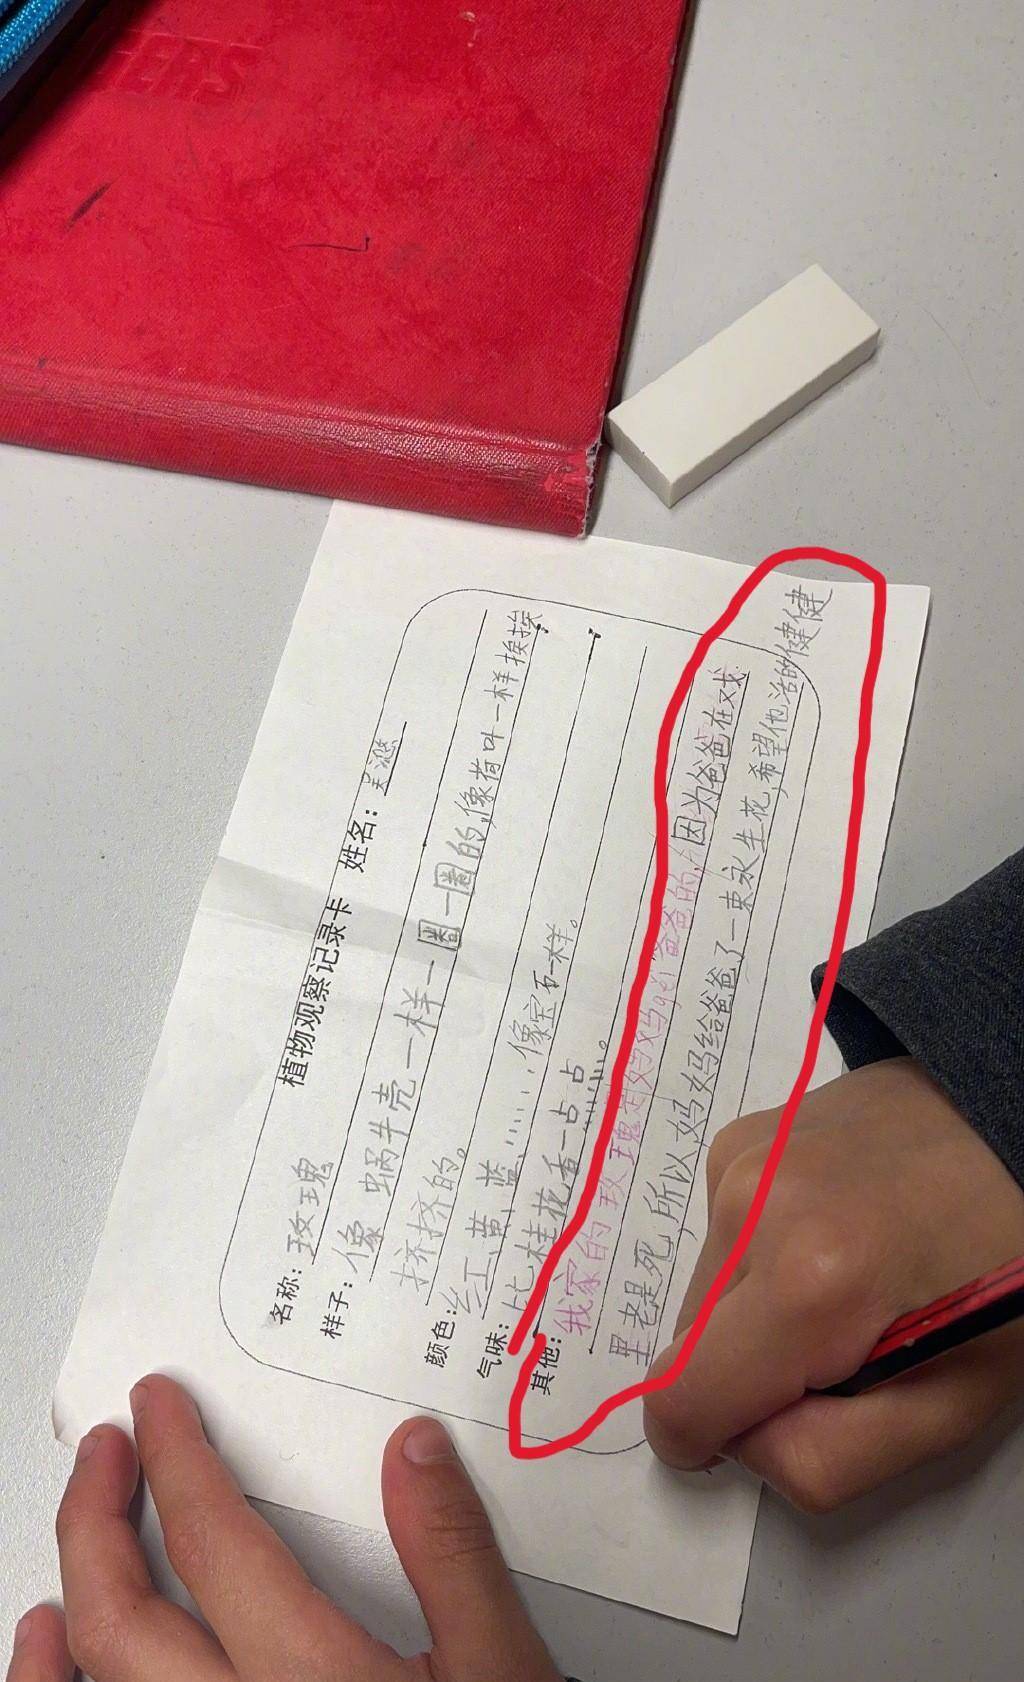 植物观察记录卡 姓名：吴悠
名称：玫瑰
样子：像 蜗牛壳一样一圈一圈的,像荷叶一样挨挨
挤挤的。
颜色：红、黄、蓝、……像宝石一样。
气味：比桂花香一点点……。
其他：我家的玫瑰是妈妈gei爸爸的,因为爸爸在戏
里老是死,所以妈妈给爸爸了一束永生花,希望他活的健健